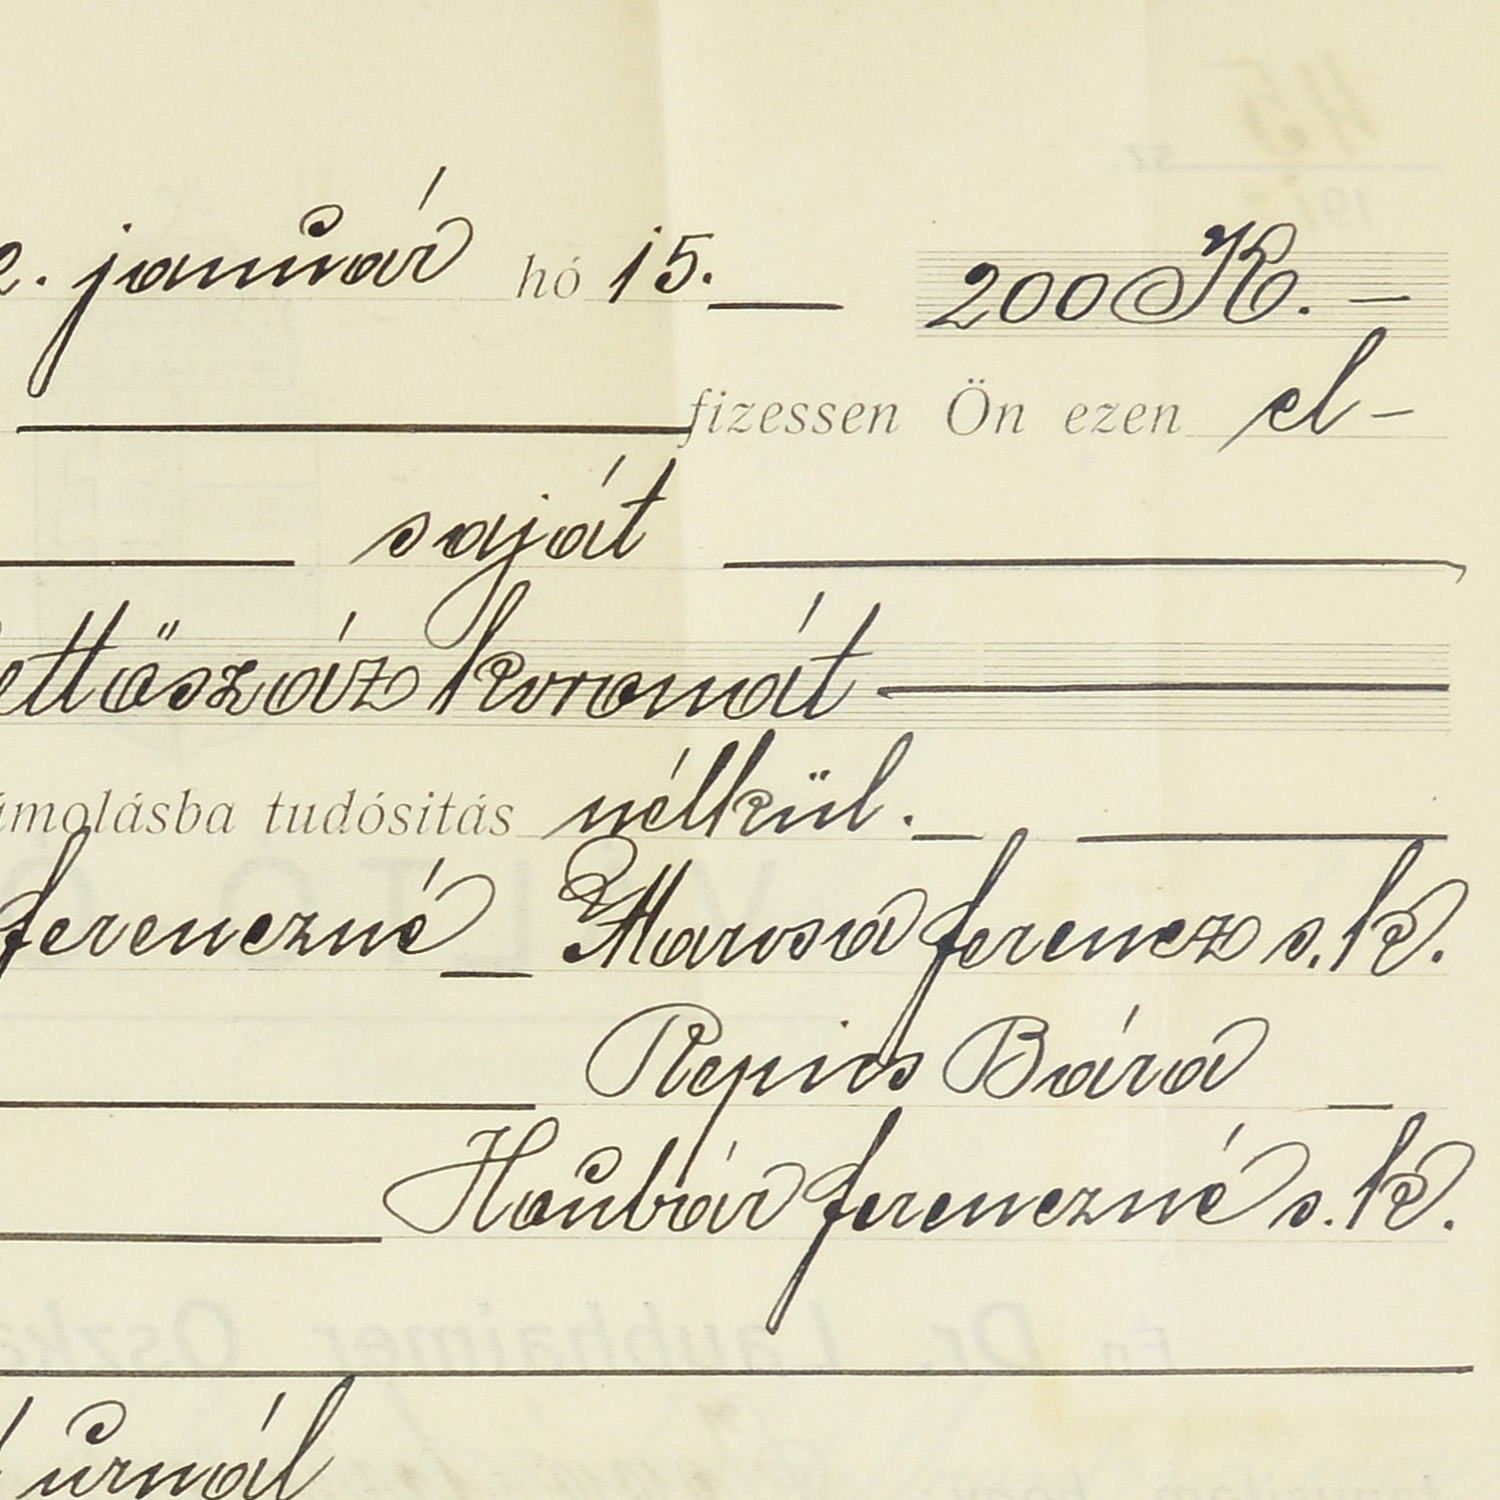 2. január hó 15. 200 K. –
fizessen Ön ezen el-
saját
ettőszáz koronát
ámolásba tudósitás nélkül.
ferenczné Marosa ferencz s. k.
Repics Bára
Haubár ferenczné s. k.
úrnál